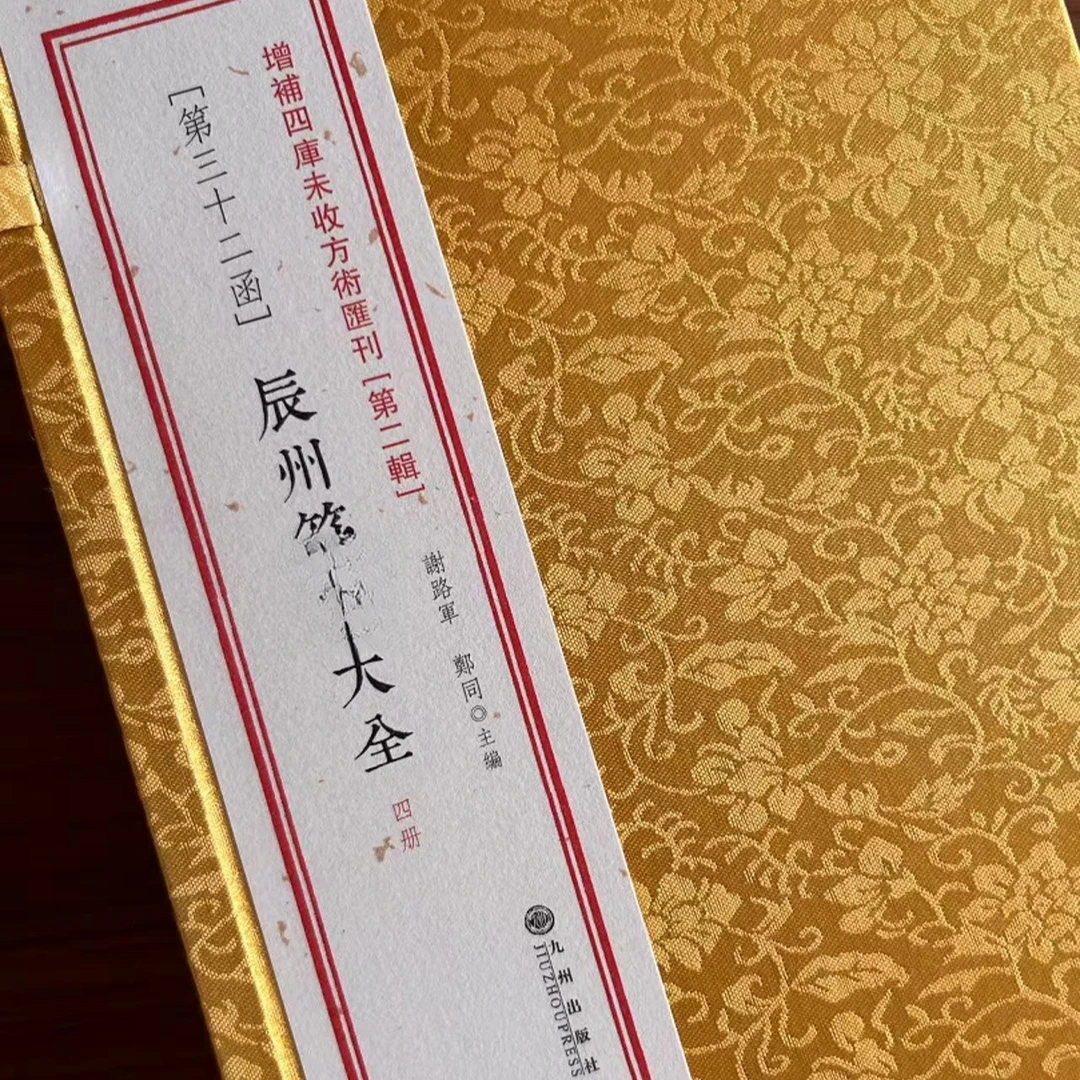 增補四庫未收方術匯刊［第二輯］
［第三十二函］
辰州 大全
四册
謝路軍 鄭同◎主編
九州出版社
JIUZHOUPRESS